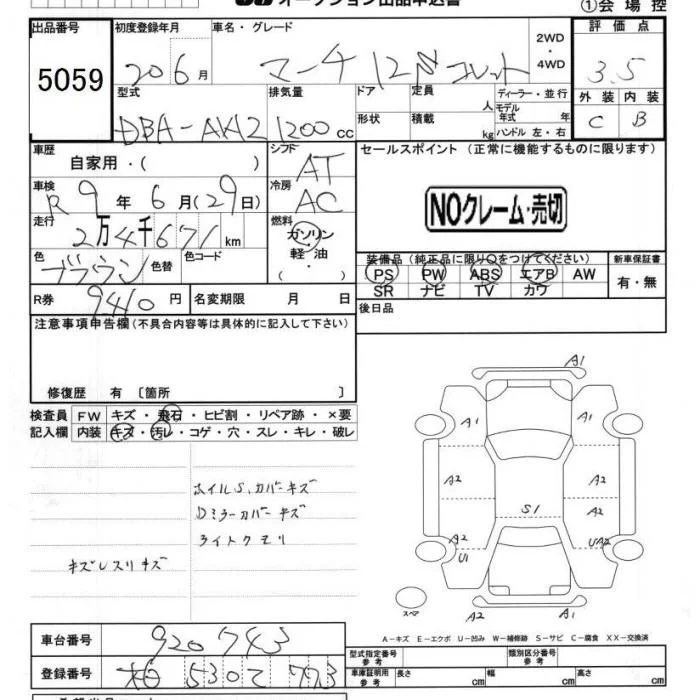 オークション出品申込書
①会場控
出品番号
5059
初度登録年月
20 6月
車名・グレード
マーチ 12N コレット
2WD
・
4WD
評価点
3.5
型式
DBA-AK12
排気量
1200cc
ドア
定員
人
形状
積載
kg
ディーラー・並行
モデル年式 年
ハンドル 左・右
外装 内装
C B
車歴
自家用・( )
シフト
AT
セールスポイント (正常に機能するものに限ります)
NOクレーム・売切
車検
R9年6月(29日)
冷房
AC
走行
2万4千671km
燃料
ガソリン
軽油
・
色
ブラウン
色替
色コード
装備品(純正品に限り○をつけてください)
PS PW ABS エアB AW
SR ナビ TV カワ
新車保証書
有・無
R券
9410円
名変期限 月 日
後日品
注意事項申告欄(不具合内容等は具体的に記入して下さい)
修復歴 有〔箇所 〕
検査員記入欄
FW キズ・飛石・ヒビ割・リペア跡・×要
内装 キズ・汚レ・コゲ・穴・スレ・キレ・破レ
ホイルS,カバーキズ
Dミラーカバーキズ
ライトクモリ
キズレスリキズ
A1
A1 A1
A2 A2
S1 A2
A2 UA2
U1
スペア
A2 A2
A-キズ E-エクボ U-凹み W-補修跡 S-サビ C-腐食 XX-交換済
車台番号
920743
登録番号
5302 773
型式指定番号
参考
類別区分番号
参考
車庫証明用
参考
長さ cm 幅 cm 高さ cm